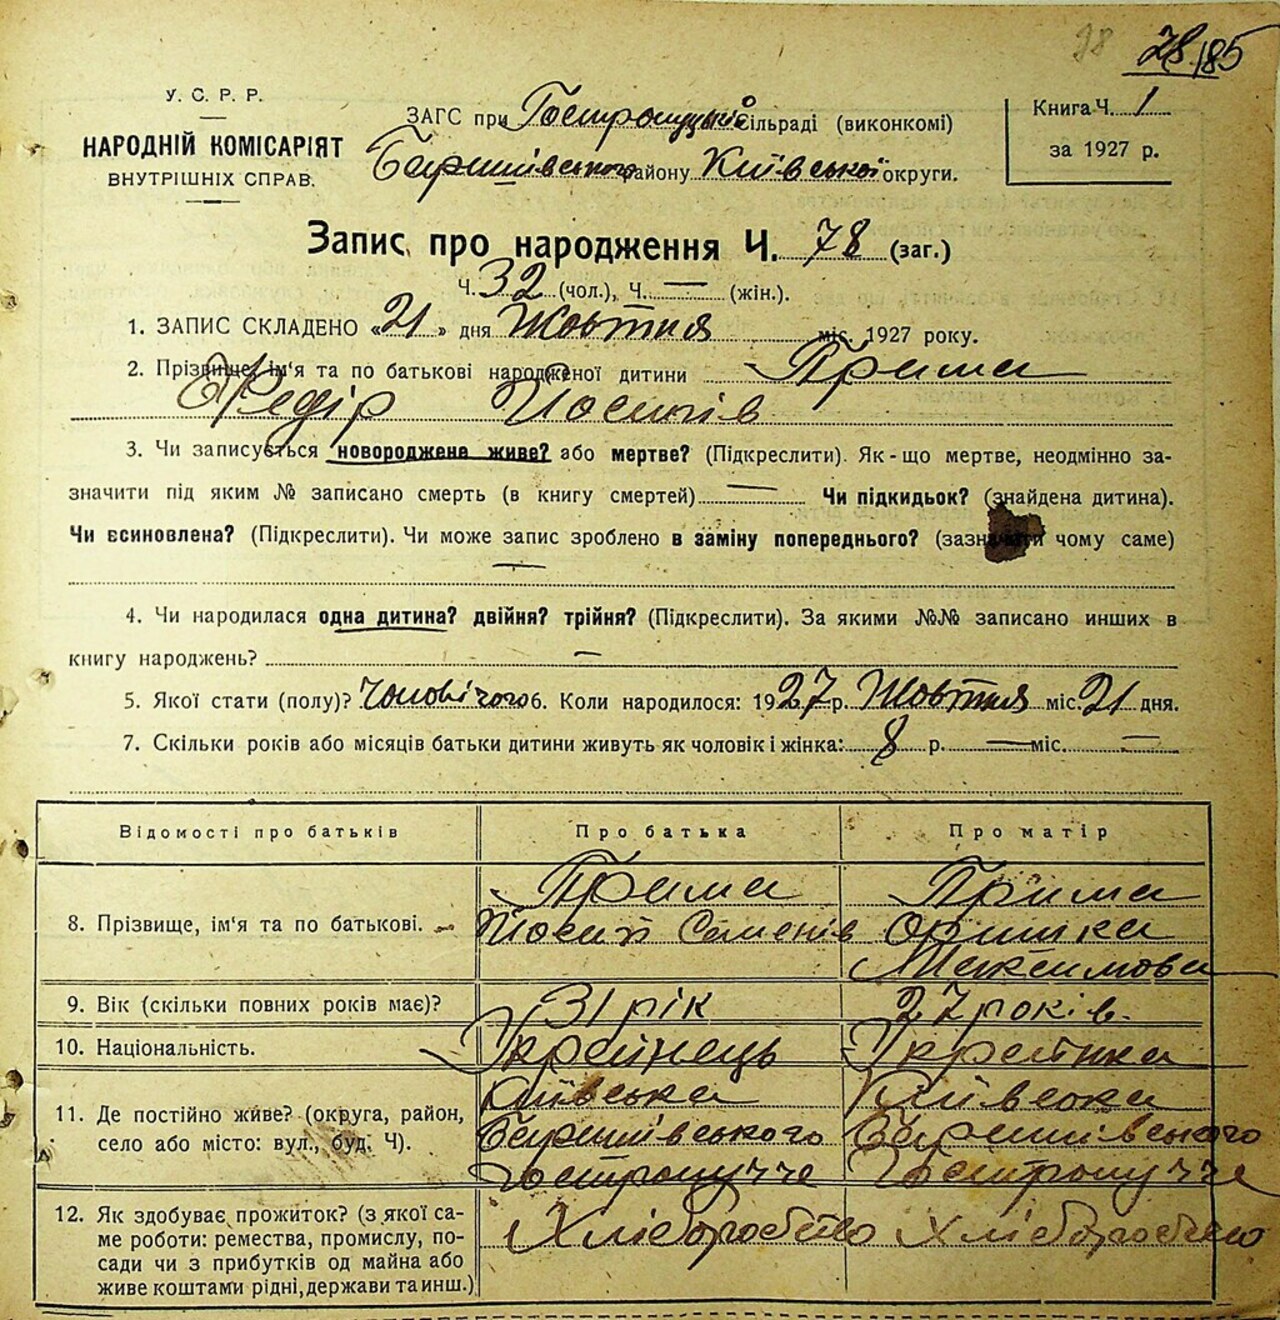 78
28/85
У. С. Р. Р.
НАРОДНІЙ КОМІСАРІЯТ
ВНУТРІШНІХ СПРАВ.
ЗАГС при Гостролуцькій сільраді (виконкомі)
Баришівського району Київської округи.
Книга Ч. 1
за 1927 р.
Запис про народження Ч. 78 (заг.)
Ч. 32 (чол.), Ч. — (жін.).
1. ЗАПИС СКЛАДЕНО «21» дня Жовтня міс. 1927 року.
2. Прізвище, ім'я та по батькові народженої дитини Прима
Федір Йосипів
3. Чи записується новороджене живе? або мертве? (Підкреслити). Як-що мертве, неодмінно за-
значити під яким № записано смерть (в книгу смертей) — Чи підкидьок? (знайдена дитина).
Чи всиновлена? (Підкреслити). Чи може запис зроблено в заміну попереднього? (зазначити чому саме)
—
4. Чи народилася одна дитина? двійня? трійня? (Підкреслити). За якими №№ записано инших в
книгу народжень? —
5. Якої стати (полу)? Чоловічого 6. Коли народилося: 1927 р. Жовтня міс. 21 дня.
7. Скільки років або місяців батьки дитини живуть як чоловік і жінка: 8 р. — міс. —
Відомості про батьків
Про батька
Про матір
8. Прізвище, ім'я та по батькові.
Прима
Йосип Семенів
Прима
Оришка
Максимова
9. Вік (скільки повних років має)?
31 рік
27 років.
10. Національність.
Українець
Українка
11. Де постійно живе? (округа, район,
село або місто: вул., буд. Ч).
Київська
Баришівського
Гостролуччє
Київська
Баришівського
Гостролуччє
12. Як здобуває прожиток? (з якої са-
ме роботи: ремества, промислу, по-
сади чи з прибутків од майна або
живе коштами рідні, держави та инш.)
Хліборобство
Хліборобство